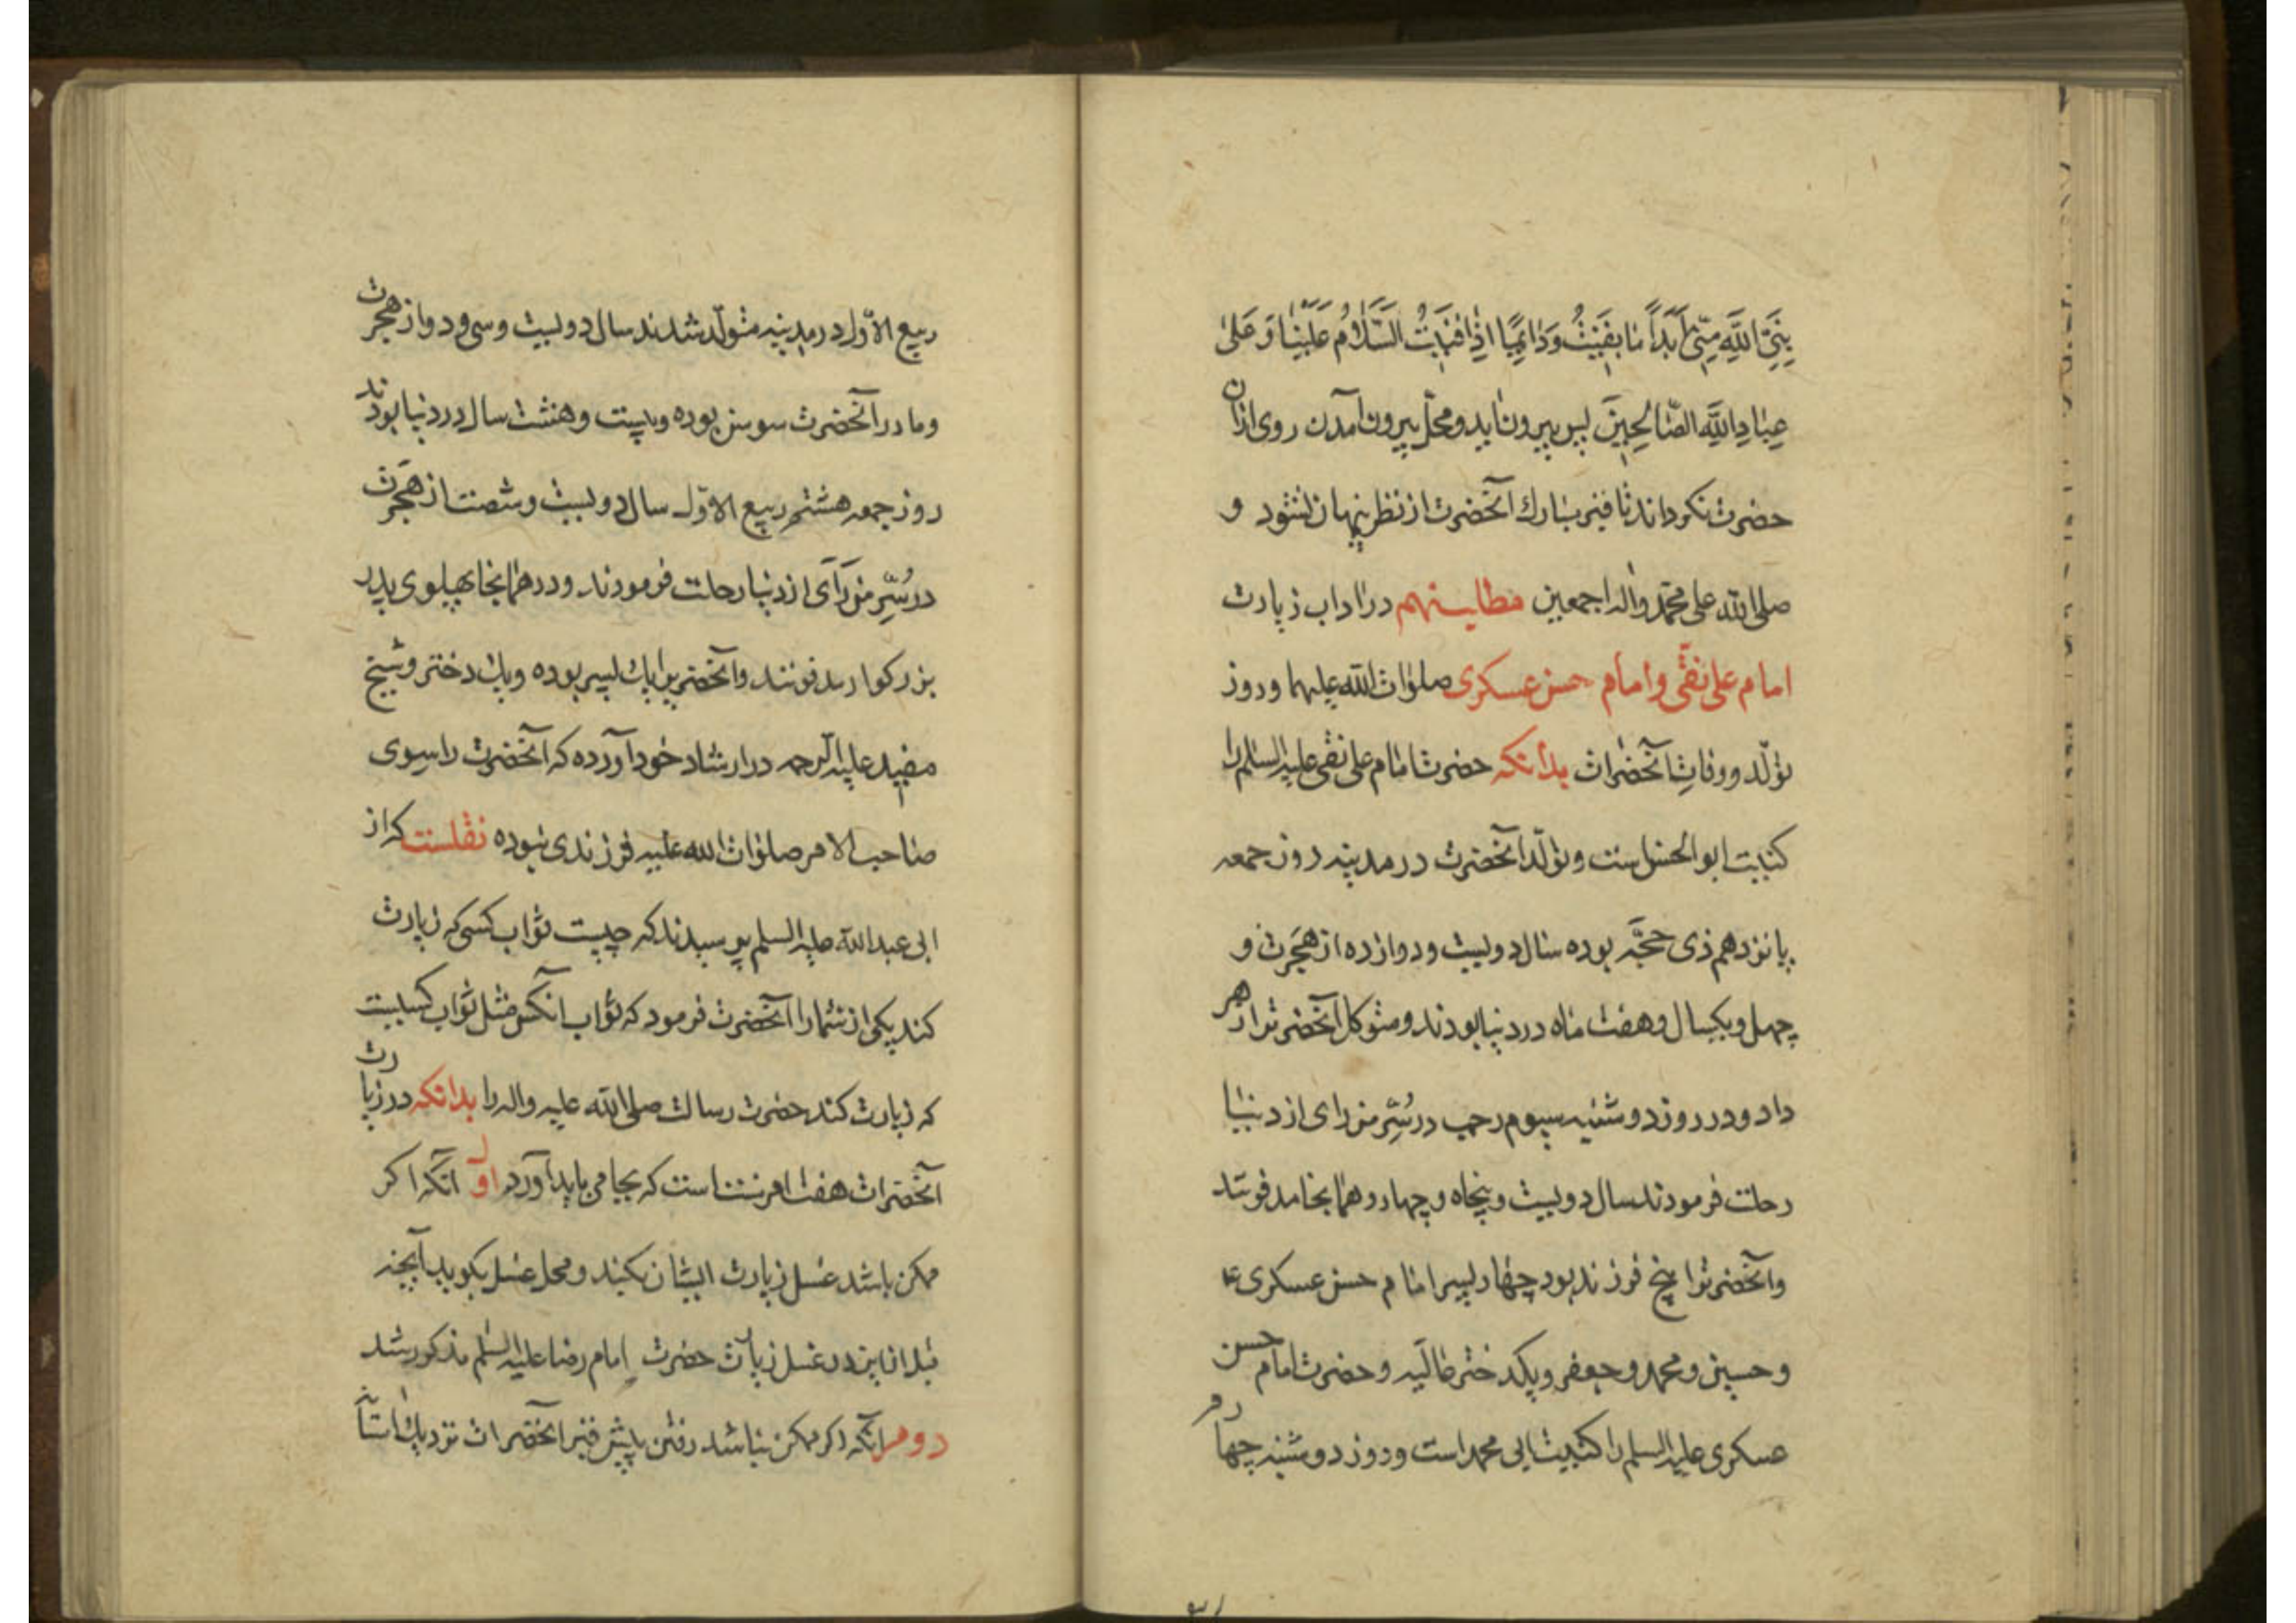 نبی الله منی ابدا ما بقیت و دائما اذا فنیت السلام علینا و علی
عباد الله الصالحین پس بیرون آید و محل بیرون آمدن روی ازان
حضرت نکرداند تا قبر مبارک آنحضرت از نظر پنهان نشود و
صلی الله علی محمد واله اجمعین مطلب نهم در اداب زیارت
امام علی نقی و امام حسن عسکری صلوات الله علیهما و روز
تولد و وفات آنحضرات بدانکه حضرت امام علی نقی علیه السلم را
کنیت ابو الحسن است و تولد آنحضرت در مدینه روز جمعه
پانزدهم ذی حجه بوده سال دویست و دوازده از هجرت و
چهل و یکسال و هفت ماه در دنیا بودند و متوکل آنحضرترا زهر
داد و در روز دوشنبه سیوم رجب در سر من رای از دنیا
رحلت فرمودند سال دویست و پنجاه و چهار و همانجا مدفونند
و آنحضرترا پنج فرزند بود چهار پسر امام حسن عسکری ع
و حسین و محمد و جعفر و یکدختر عالیه و حضرت امام حسن
عسکری علیه السلم را کنیت ابی محمد است و روز دوشنبه چهارم
ربیع الاول در مدینه متولد شدند سال دویست و سی و دو از هجرت
و مادر آنحضرت سوسن بوده و بیست و هشت سال در دنیا بودند
روز جمعه هشتم ربیع الاول سال دویست و شصت از هجرت
در سر من رآی از دنیا رحلت فرمودند و در همانجا بپهلوی پدر
بزرکوار مدفونند و آنحضرترا یک پسر بوده و یک دختر و شیخ
مفید علیه الرحمه در ارشاد خود آورده که آنحضرت را سوی
صاحب الامر صلوات الله علیه فرزندی نبوده نقلست که از
ابی عبد الله علیه السلم پرسیدند که چیست ثواب کسی که زیارت
کند یکی از شما را آنحضرت فرمود که ثواب آنکس مثل ثواب کسیست
که زیارت کند حضرت رسالت صلی الله علیه واله را بدانکه در زیارت
آنحضرات هفت امر سنت است که بجا می باید آورد اول آنکه اکر
ممکن باشد غسل زیارت ایشان بکند و محل غسل بکوید آنچه
قبل ازین در غسل زیارت حضرت امام رضا علیه السلم مذکور شد
دوم آنکه اکر ممکن نباشد رفتن به پیش قبر آنحضرات نزدیک